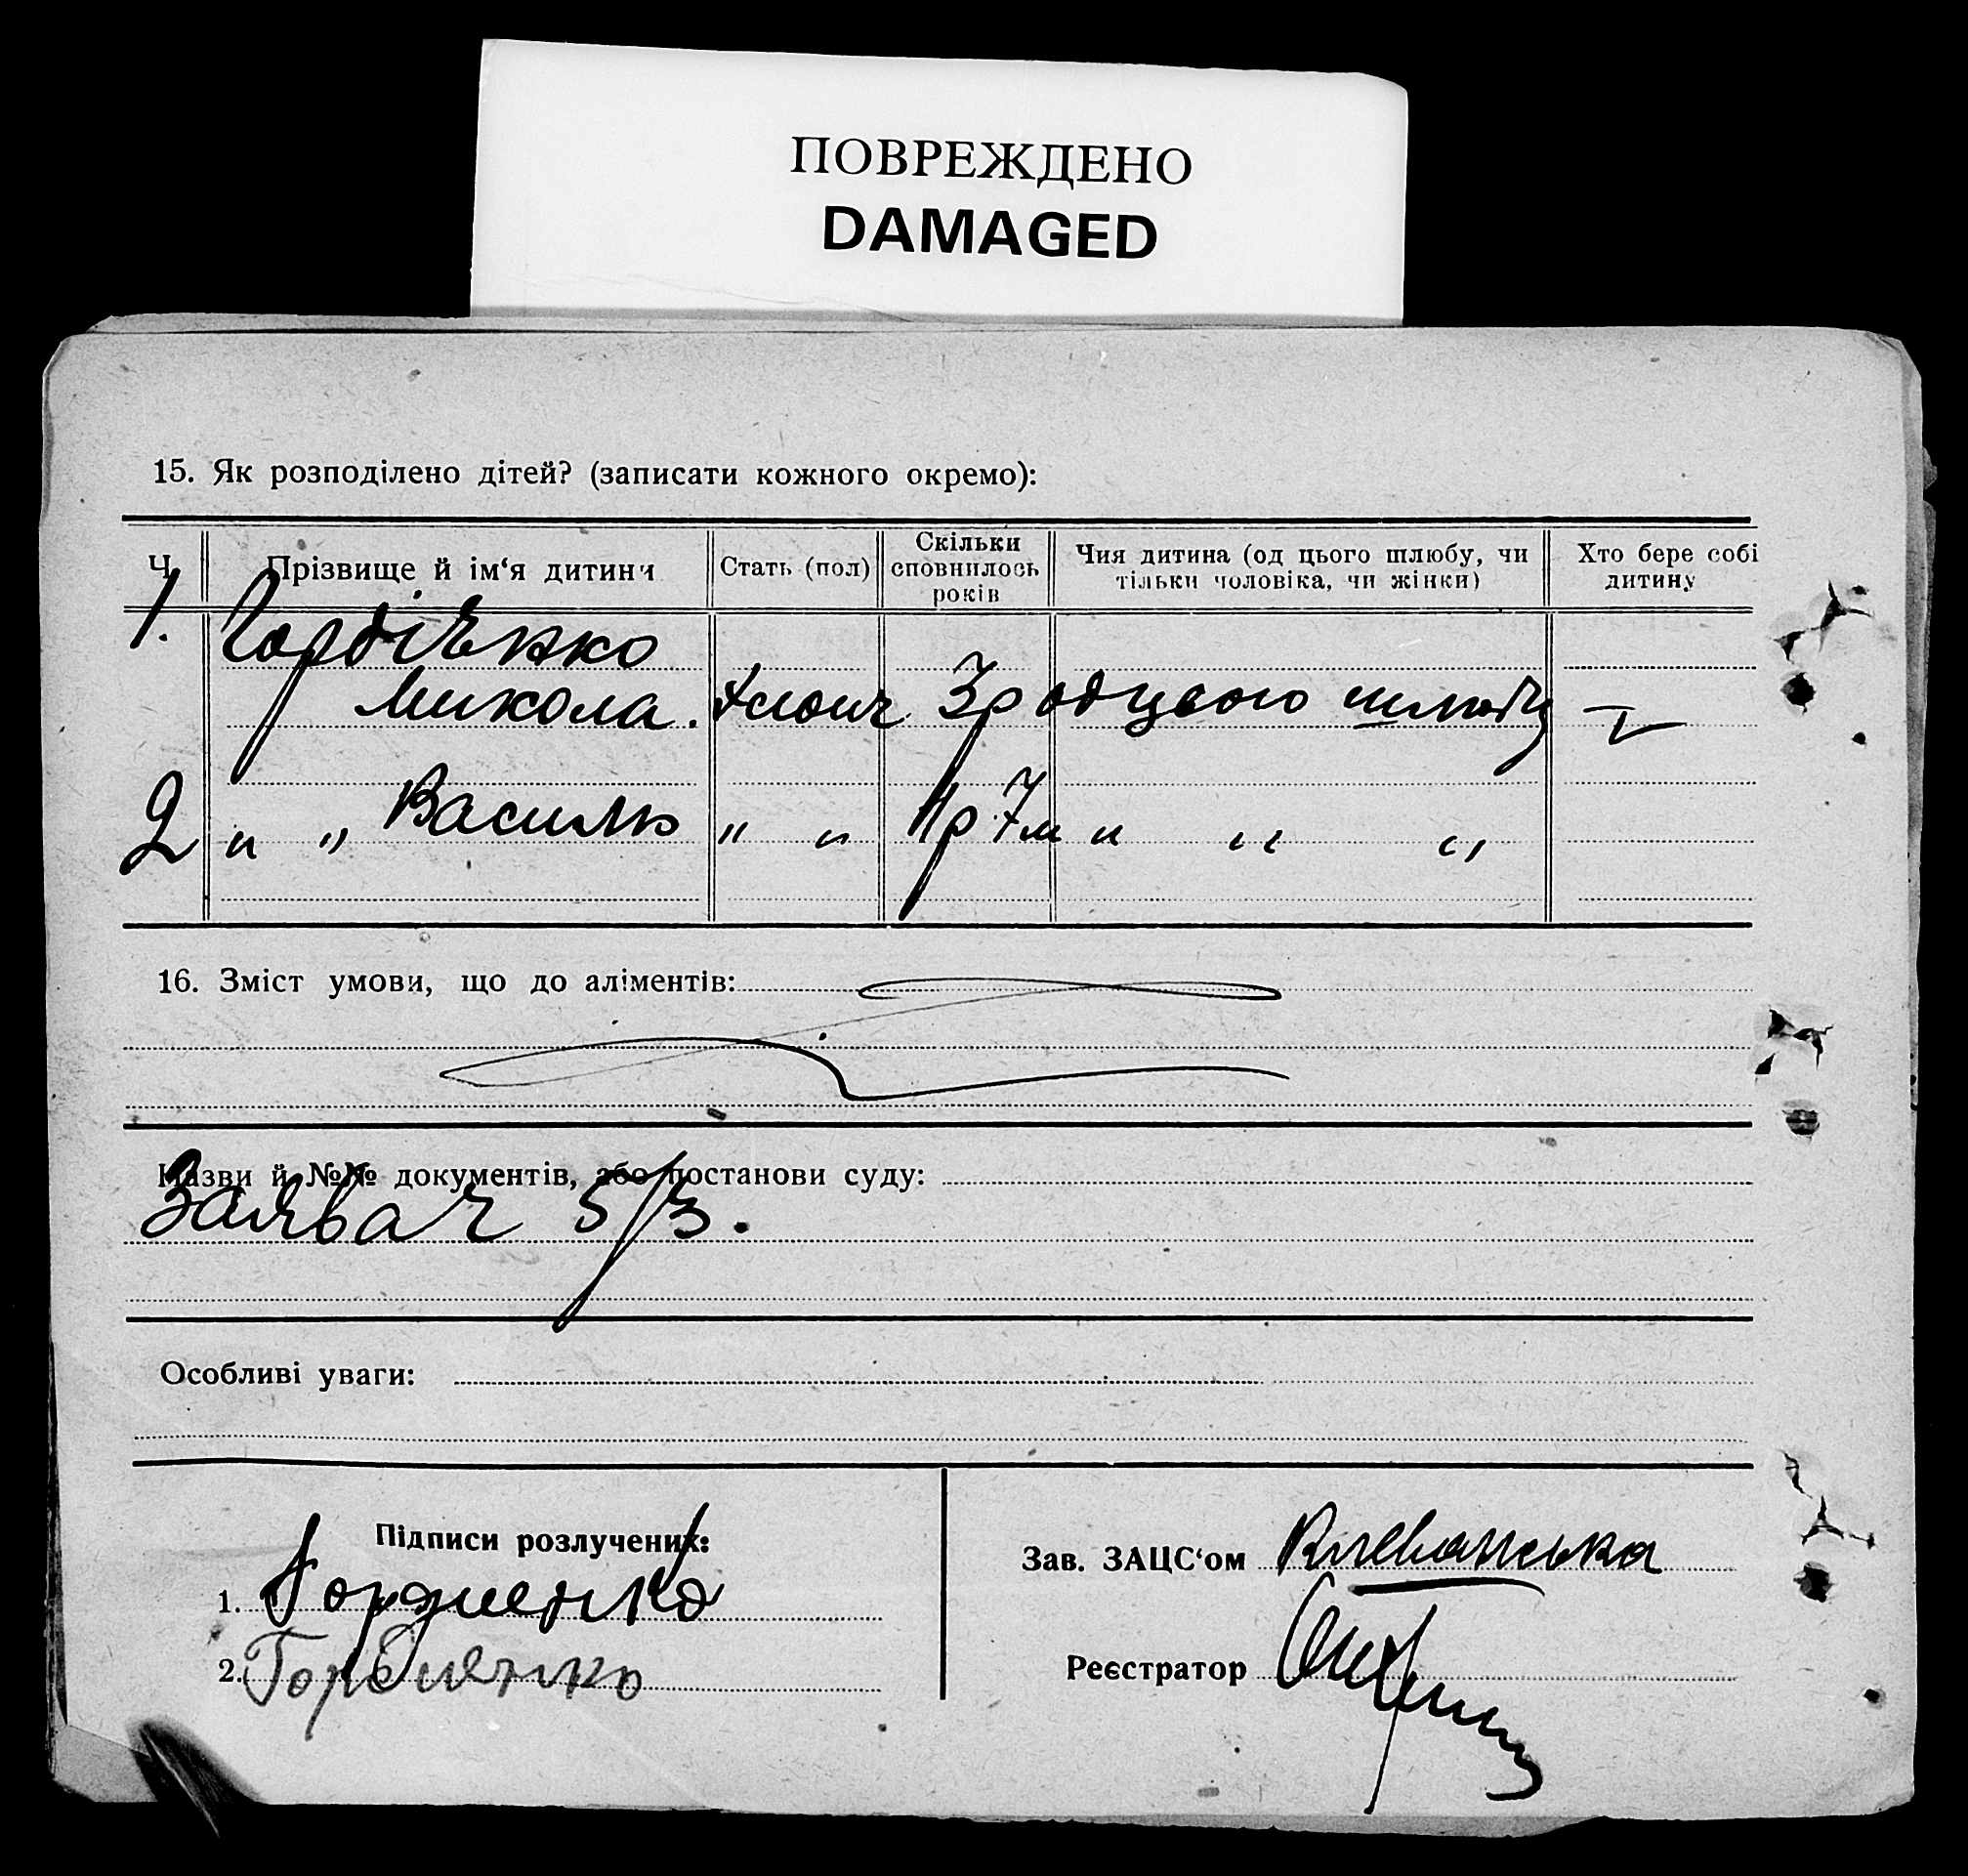 ПОВРЕЖДЕНО
DAMAGED
15. Як розподілено дітей? (записати кожного окремо):
Ч. Прізвище й ім‘я дитини Стать (пол) Скільки сповнилось років Чия дитина (од цього шлюбу, чи тільки чоловіка, чи жінки) Хто бере собі дитину
1. Гордієнко
Микола. хлопч 3р од цього шлюбу
2 " " Василь " " 1р 7м " " "
16. Зміст умови, що до аліментів:
Назви й №№ документів, або постанови суду:
Заява ч 5/3.
Особливі уваги:
Підписи розлучених:
1. Гордиенко
2. Гордиенко
Зав. ЗАЦС‘ом
Реєстратор